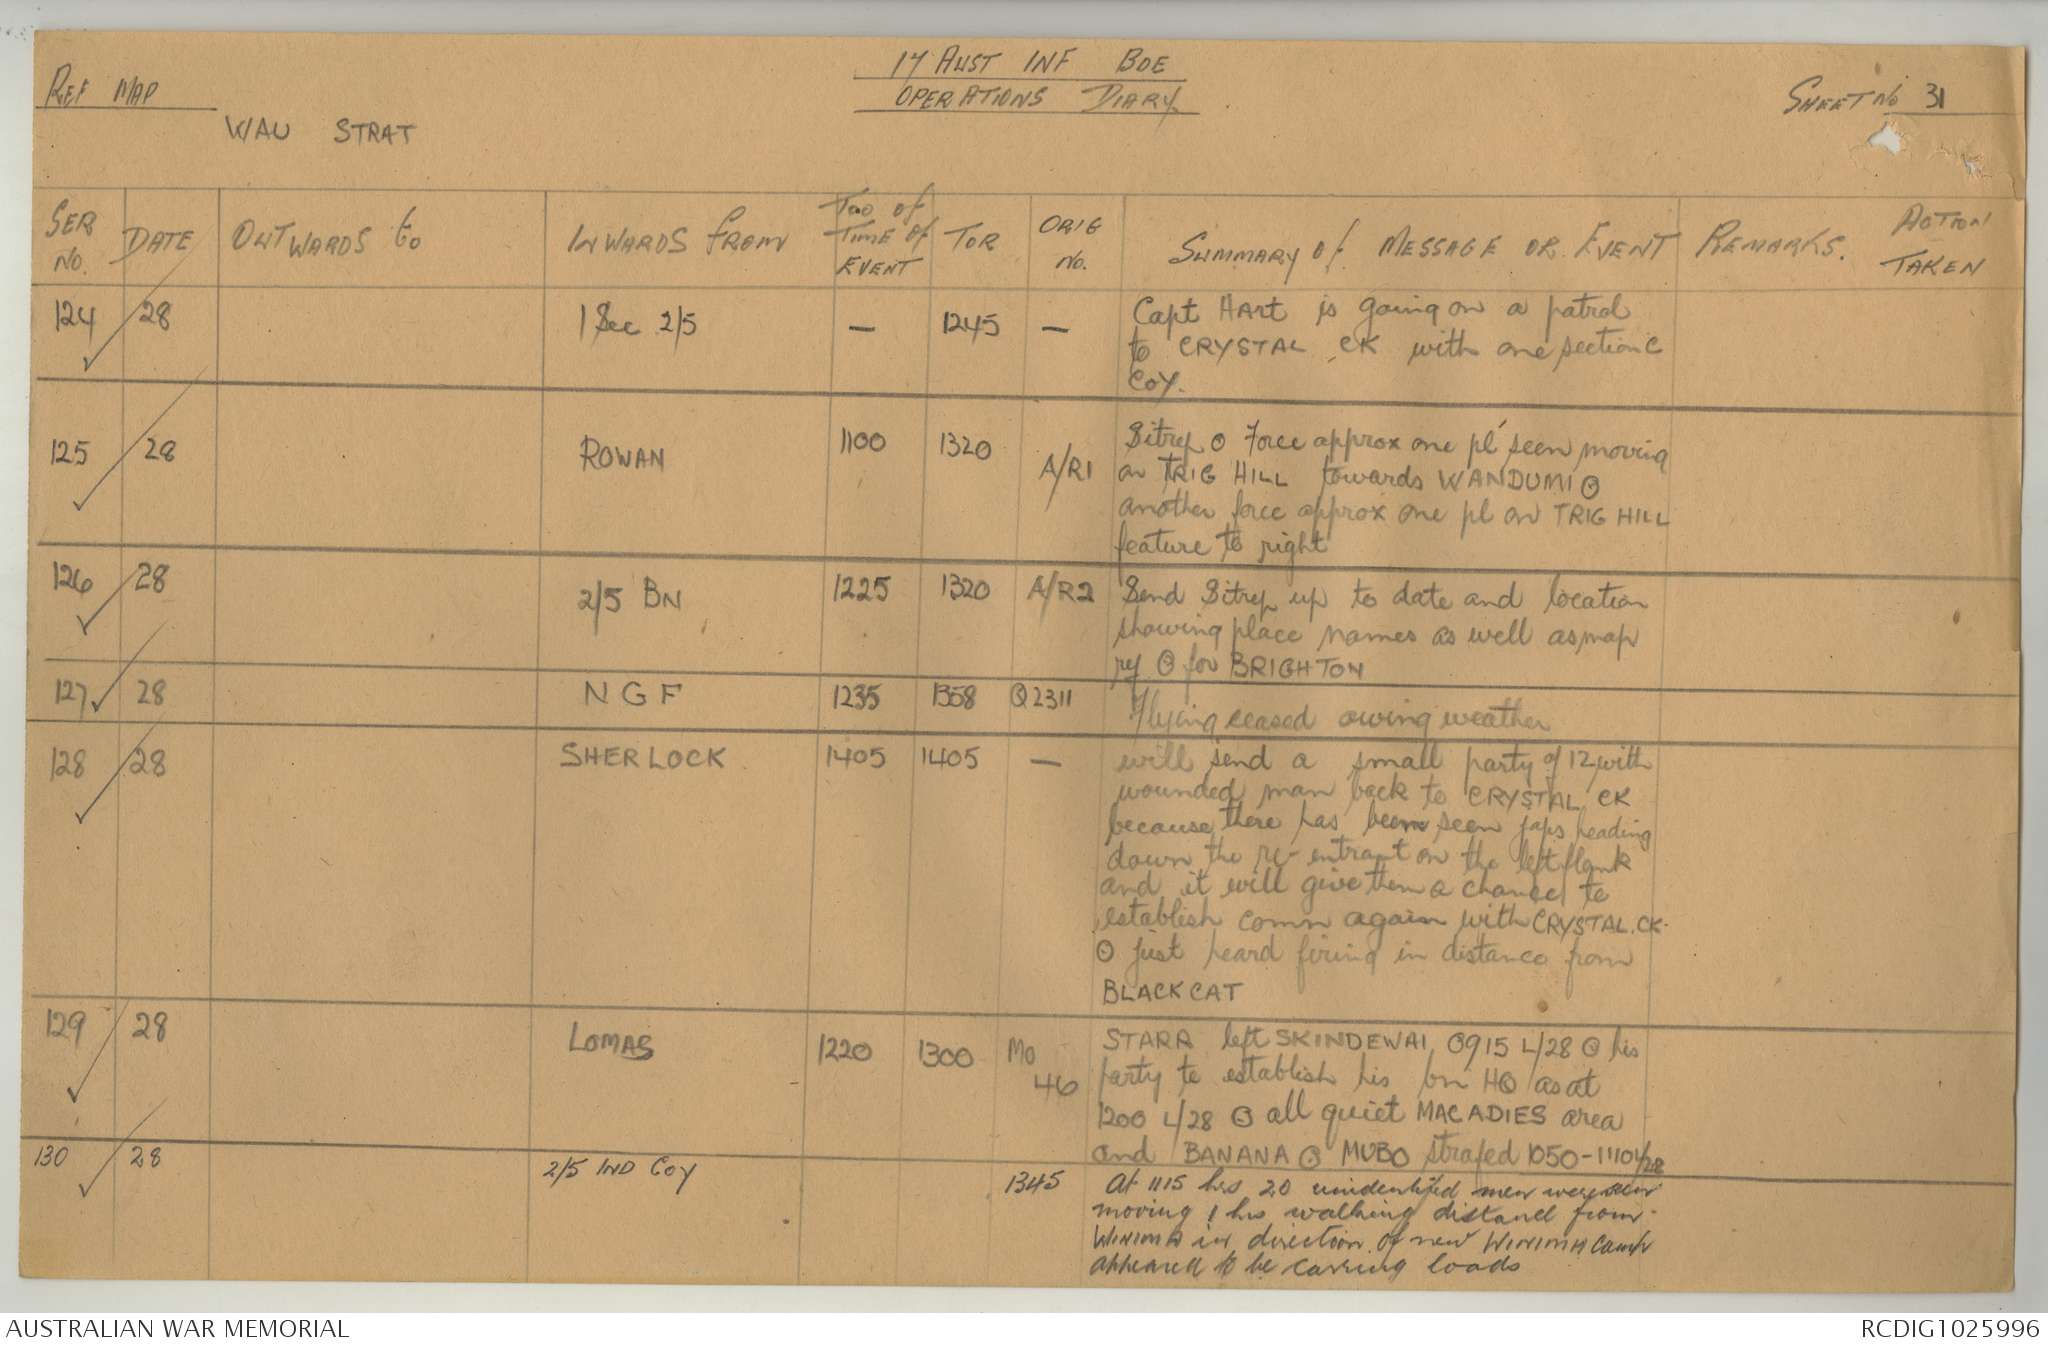 17 AUST INF BDE
OPERATIONS DIARY
REF MAP
WAU STRAT
SHEET No 31
SER No. DATE OUTWARDS to INWARDS FROM TOO of TIME of EVENT TOR ORIG No. SUMMARY of MESSAGE OR EVENT REMARKS. ACTION TAKEN
124 28 1 Sec 2/5 — 1245 — Capt HART is going on a patrol
to CRYSTAL CK with one section C
Coy.
125 28 ROWAN 1100 1320 A/R1 Sitrep ⊙ Force approx one pl seen moving
on TRIG HILL towards WANDUMI ⊙
another force approx one pl on TRIG HILL
feature to right
126 28 2/5 BN 1225 1320 A/R2 Send Sitrep up to date and location
showing place names as well as map
ref ⊙ for BRIGHTON
127 28 NGF 1235 1358 Q2311 Flying ceased owing weather
128 28 SHERLOCK 1405 1405 — will send a small party of 12 with
wounded man back to CRYSTAL CK
because there has been seen japs heading
down the re-entrant on the left flank
and it will give them a chance to
establish comn again with CRYSTAL CK.
⊙ just heard firing in distance from
BLACK CAT
129 28 LOMAS 1220 1300 Mo 46 STARR left SKINDEWAI 0915 L/28 ⊙ his
party to establish his bn HQ as at
1200 L/28 ⊙ all quiet MACADIES area
and BANANA ⊙ MUBO strafed 1050-1110L/28
130 28 2/5 IND COY 1345 At 1115 hrs 20 unidentified men were seen
moving 1 hrs walking distance from
WINIMA in direction of new WINIMA Camp
appeared to be carring loads
AUSTRALIAN WAR MEMORIAL
RCDIG1025996